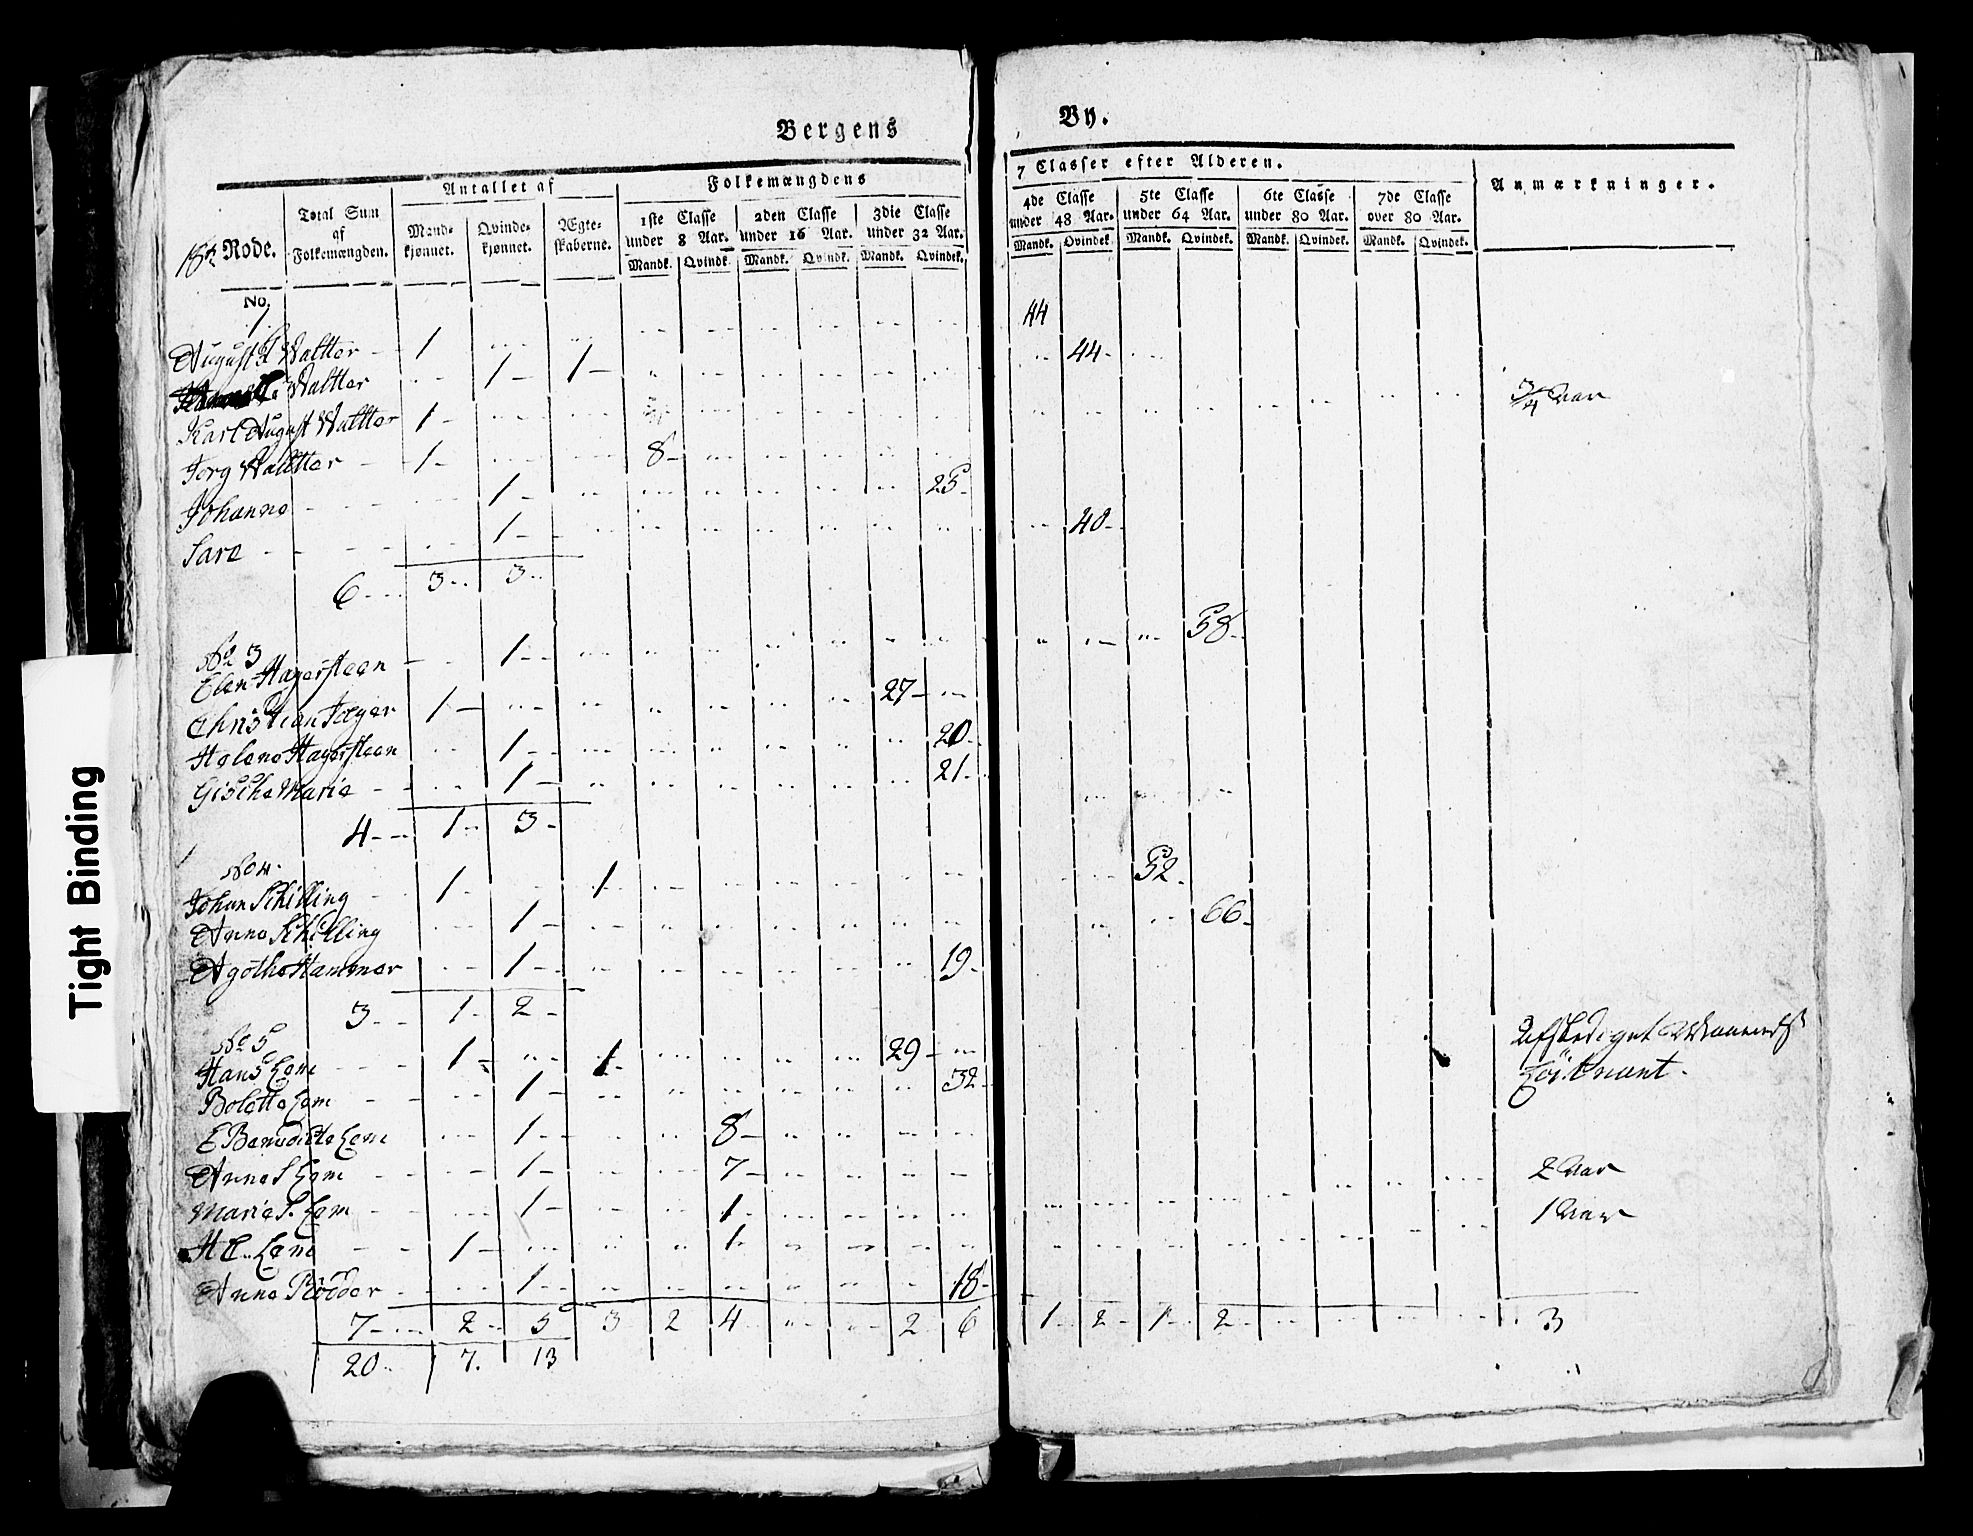 Bergens By.
18de Rode. Total Sum af Folkemængden. Antallet af Mandkjønnet. Qvindekjønnet. Ægteskaberne. Folkemængdens 7 Classer efter Alderen. Anmærkninger.
1ste Classe under 8 Aar. 2den Classe under 16 Aar. 3die Classe under 32 Aar. 4de Classe under 48 Aar. 5te Classe under 64 Aar. 6te Classe under 80 Aar. 7de Classe over 80 Aar.
Mandk. Qvindk. Mandk. Qvindk. Mandk. Qvindek. Mandk. Qvindek. Mandk. Qvindek. Mandk. Qvindek. Mandk. Qvindek.
No. 1
August Waltter 1 44
Waltter 1 1 44
Karl August Waltter 1 3/4 Aar
Jörg Waltter 1 8
Johanne 1 25
Sara 1 40
6 3 3
No 3
Elen Hagersteen 1 58
Christian Jæger 1 27
Helene Hagersteen 1 20
Gische Marie 1 21
4 1 3
No 4
Johan Schilling 1 1 52
Anna Schilling 1 66
Agothe Hammer 1 19
3 1 2
No 5
Hans Lem 1 1 29 Afskediget
Bolette Lem 1 32 Löitnant
E Benedicte Lem 1 8
Anna S Lem 1 7
Marie S. Lem 1 1 2 Aar
H C. Lem 1 1 1 Aar
Anna Rödder 1 18
7 2 5 3 2 4 2 6 1 2 1 2 3
20 7. 13
Tight Binding